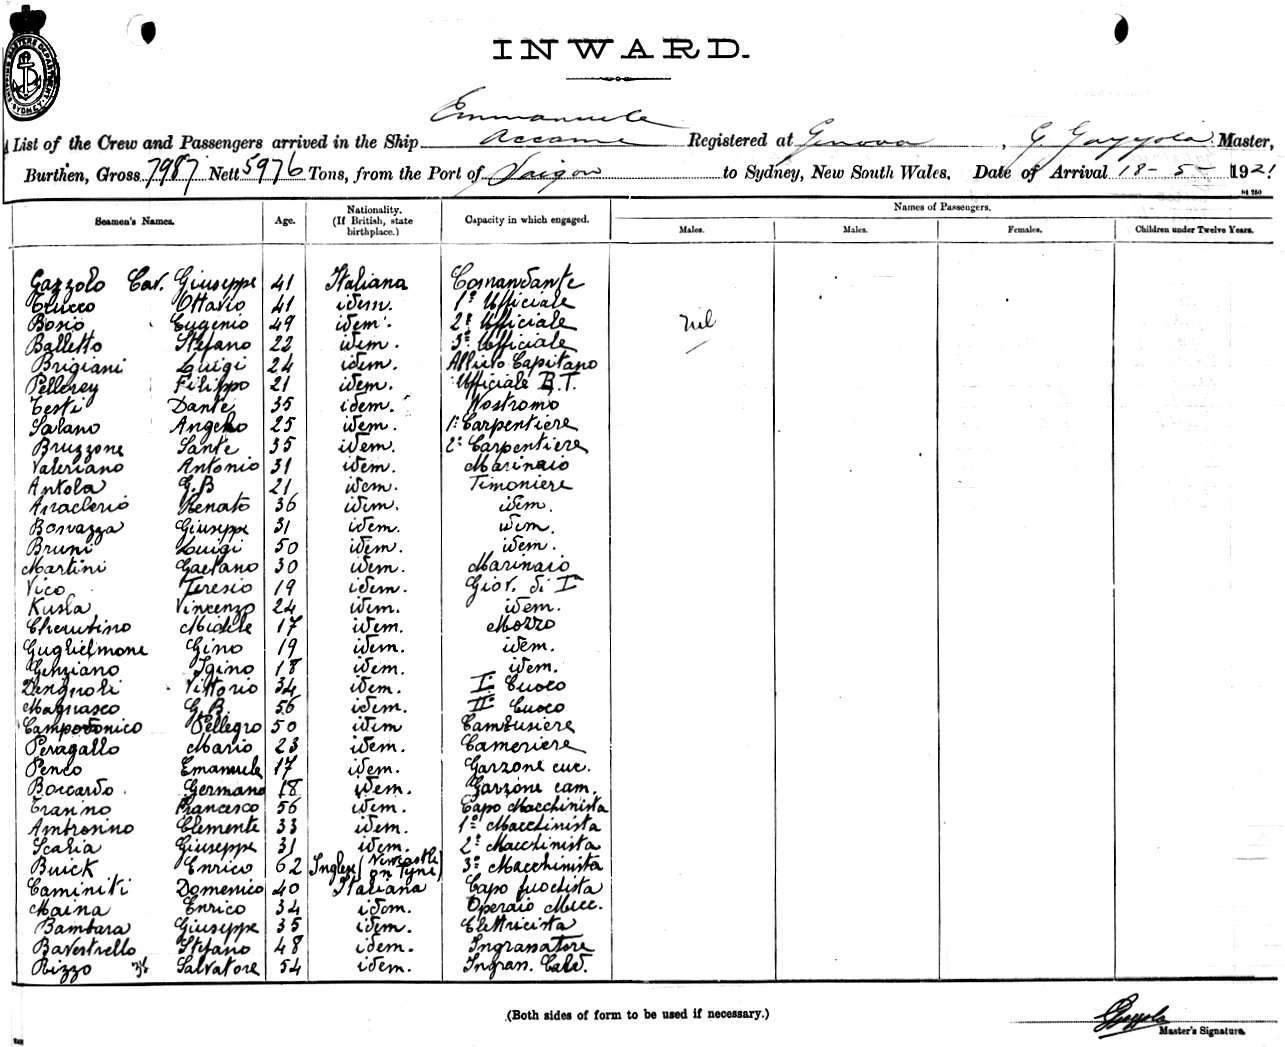 INWARD.
List of the Crew and Passengers arrived in the Ship Emmanuele Accame Registered at Genova, G Gazzolo Master,
Burthen, Gross 7987 Nett 5976 Tons, from the Port of Saigon to Sydney, New South Wales. Date of Arrival 18-5-1921
Seamen's Names. Age. Nationality. (If British, state birthplace.) Capacity in which engaged. Names of Passengers.
Males. Males. Females. Children under Twelve Years.
Gazzolo Cav. Giuseppe 41 Italiana Comandante
Trucco Ottavio 41 idem. 1º Ufficiale
Bosio Eugenio 49 idem. 2º Ufficiale
nil
Balletto Stefano 22 idem. 3º Ufficiale
Brigiani Luigi 24 idem. Allievo Capitano
Pellerey Filippo 21 idem. Ufficiale R.T.
Testi Dante 35 idem. Nostromo
Salano Angelo 25 idem. 1º Carpentiere
Bruzzone Sante 35 idem. 2º Carpentiere
Valeriano Antonio 31 idem. Marinaio
Antola G.B 21 idem. Timoniere
Renato 36 idem. idem.
Giuseppe 31 idem. idem.
Bruni Luigi 50 idem. idem.
Martini Gaetano 30 idem. Marinaio
Vico Teresio 19 idem. Giov. di I
Vincenzo 24 idem. idem.
Cherutino Michele 17 idem. Mozzo
Guglielmone Gino 19 idem. idem.
Genziano Igino 18 idem. idem.
Vittorio 34 idem. I. Cuoco
Magnasco G.B. 56 idem. IIº Cuoco
Campodonico Pellegro 50 idem Cambusiere
Peragallo Mario 23 idem. Cameriere
Penco Emanuele 17 idem. Garzone cuc.
Boccardo Germano 18 idem. Garzone cam.
Tranino Francesco 56 idem. Capo Macchinista
Ambrosino Clemente 33 idem. 1º Macchinista
Scalia Giuseppe 31 idem. 2º Macchinista
Buick Enrico 62 Inglese (Newcastle on Tyne) 3º Macchinista
Caminiti Domenico 40 Italiana Capo fuochista
Maina Enrico 34 idem. Operaio Mecc.
Bambara Giuseppe 35 idem. Elettricista
Bavestrello Stefano 48 idem. Ingrassatore
Rizzo Salvatore 54 idem. Ingran. Cald.
(Both sides of form to be used if necessary.)
GGazzolo
Master's Signature.